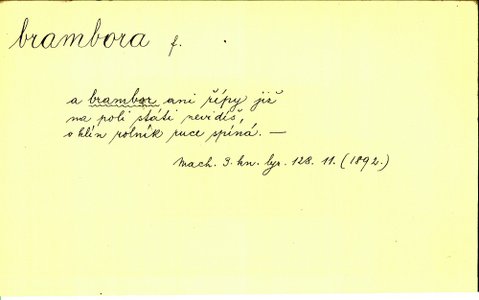 brambora f.
a brambor ani řépy již
na poli státi nevidíš,
v klín rolník ruce spíná. —
Mach. 3. kn. lyr. 128. 11. (1892.)